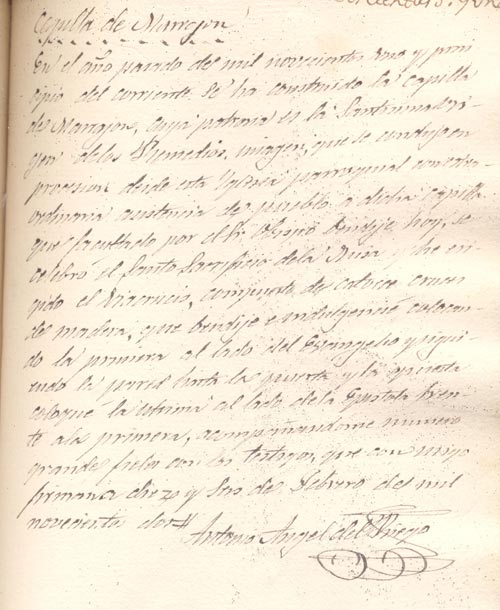 Capilla de Marrajon
En el año pasado del mil novecientos uno y prin
cipio del corriente se ha construido la Capilla
de Marrajon, cuya patrona es la Santisima Vir
gen de los Remedios, imagen, que se condujo en
procesion desde esta Yglesia parroquial con extra
ordinaria asistencia de pueblo a dicha Capilla
que facultado por el Sr. Obispo bendije, hoy, se
celebro el Santo Sacrificio de la Misa y he en
gido el Viacrucis, compuesto de catorce cruces
de madera, que bendije e indulgencié colocan
do la primera al lado del Evangelio y sigui
endo la pared hasta la puerta y la
coloqué la ultima al lado de la Epistola fren
te a la primera, acompañandome numero
grande fieles con los testigos, que con migo
firman a diez y seis de Febrero del mil
novecientos dos
Antonio Angel del Riego